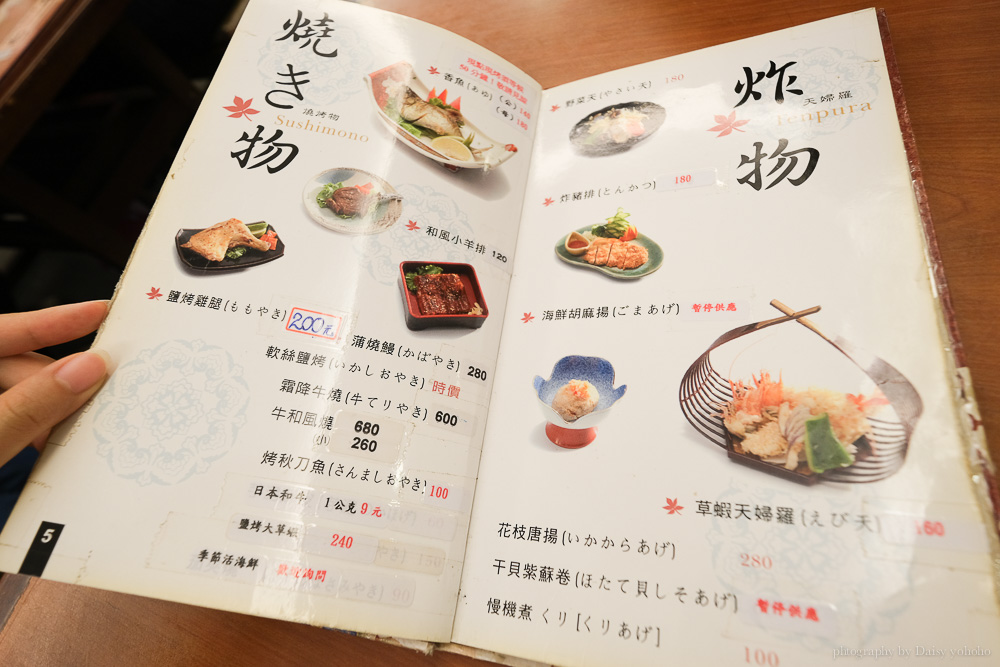 燒き物
燒烤物
Sushimono
香魚(あゆ)
和風小羊排 120
鹽烤雞腿(ももやき) 200元
蒲燒鰻(かばやき) 280
軟絲鹽烤(いかしおやき) 時價
霜降牛燒(牛てりやき) 600
牛和風燒 680
(小) 260
烤秋刀魚(さんましおやき) 100
日本和牛 1公克9元
鹽烤大草蝦 240
季節活海鮮
5
炸物
天婦羅
Tenpura
野菜天(やさい天) 180
炸豬排(とんかつ) 180
海鮮胡麻揚(ごまあげ) 暫停供應
草蝦天婦羅(えび天)
花枝唐揚(いかからあげ) 280
干貝紫蘇卷(ほたて貝しそあげ) 暫停供應
慢機煮 くり[くりあげ] 100
photography by Daisy yohoho